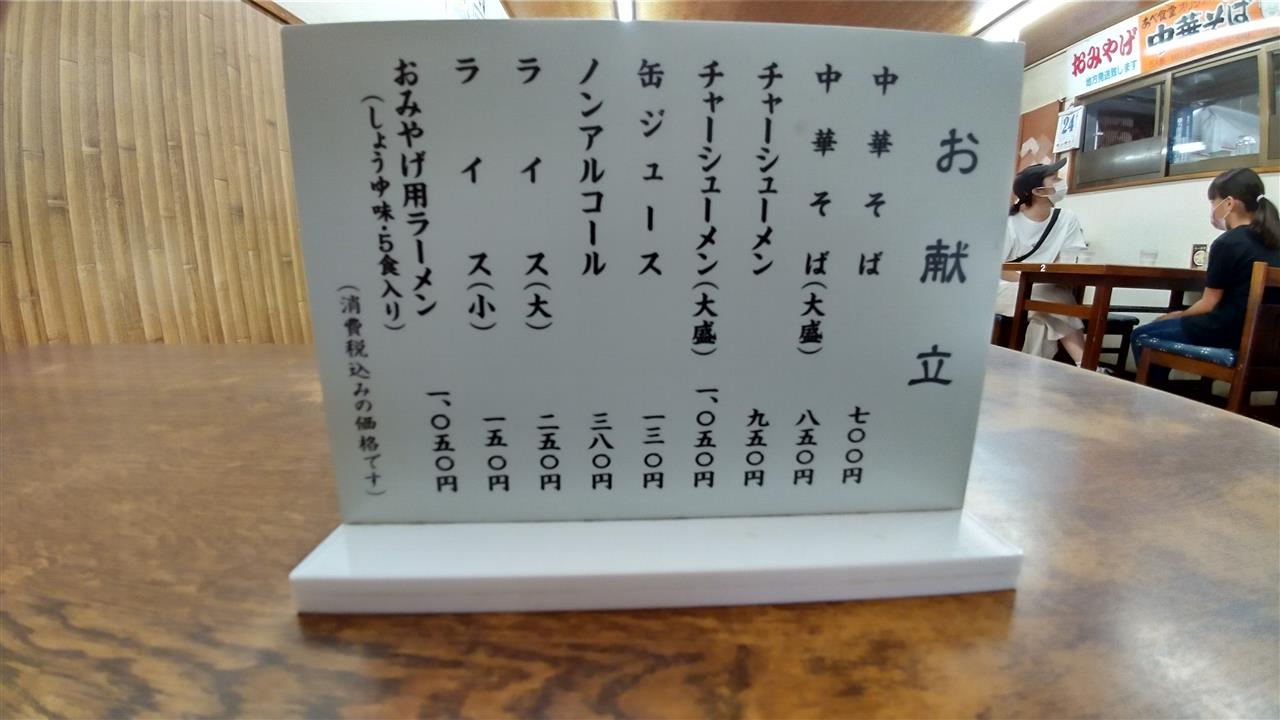 お献立
中華そば 七〇〇円
中華そば(大盛) 八五〇円
チャーシューメン 九五〇円
チャーシューメン(大盛) 一、〇五〇円
缶ジュース 一三〇円
ノンアルコール 三八〇円
ライス(大) 二五〇円
ライス(小) 一五〇円
おみやげ用ラーメン 一、〇五〇円
(しょうゆ味・5食入り)
(消費税込みの価格です)
おみやげ
地方発送致します
あべ食堂
中華そば
24
2